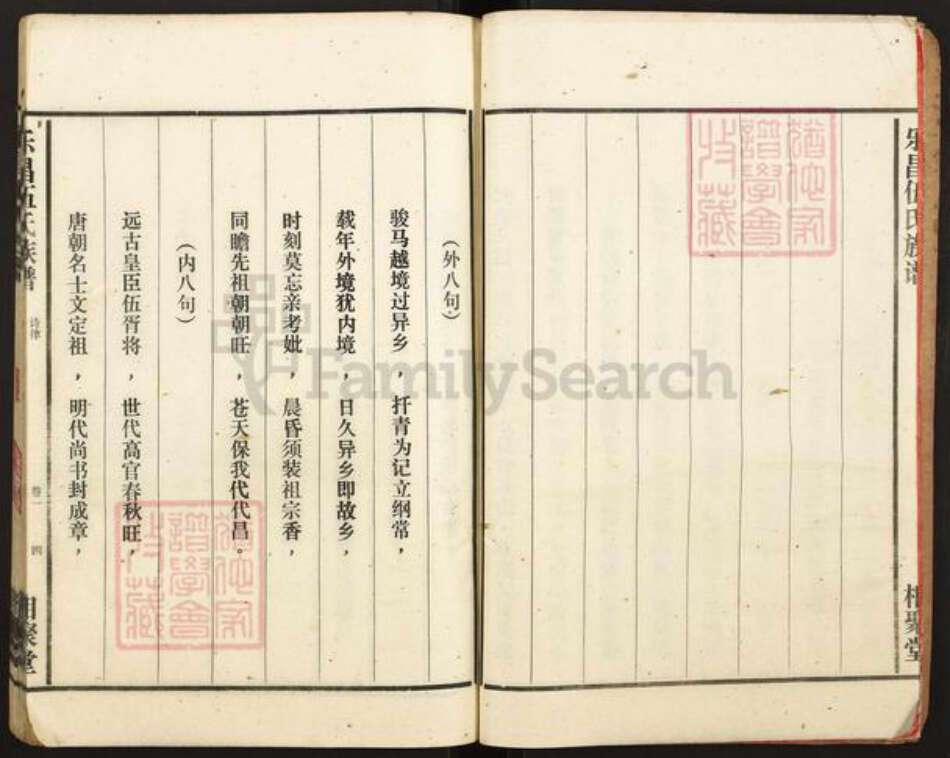 乐昌伍氏族谱
相聚堂
猶他家
譜學會
收藏
(外八句)
骏马越境过异乡，扦青为记立纲常，
载年外境犹内境，日久异乡即故乡，
时刻莫忘亲考妣，晨昏须装祖宗香，
同瞻先祖朝朝旺，苍天保我代代昌。
(内八句)
远古皇臣伍胥将，世代高官春秋旺，
唐朝名士文定祖，明代尚书封成章，
猶他家
譜學會
收藏
乐昌伍氏族谱
诗律
卷一
四
相聚堂
FamilySearch